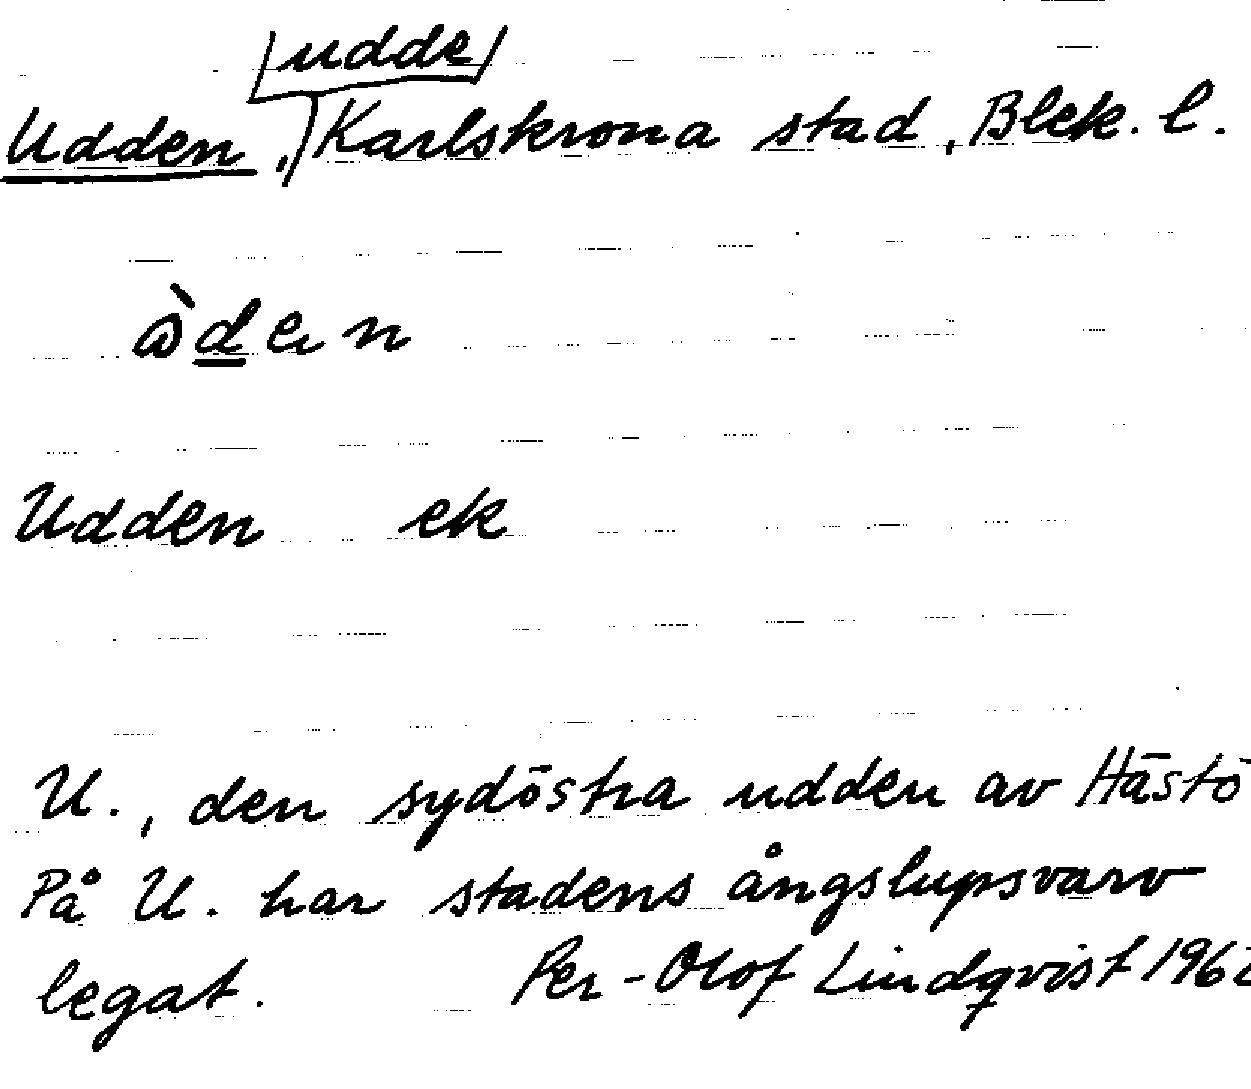 udde
Udden, Karlskrona stad, Blek. l.
Udden ek
U., den sydöstra udden av Hästö
På U. har stadens ångslupsvarv
legat. Per-Olof Lindqvist